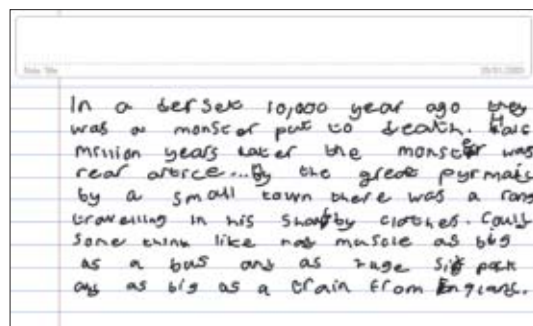 In a derset 10,000 year ago they
was a monster put to death. Half
million years later the monster was
rear artice... By the great pyrmais
by a small town there was a rong
travelling in his shabby clothes. Could
some think like has muscle as big
as a bus and as huge six pack
and as big as a train from England.